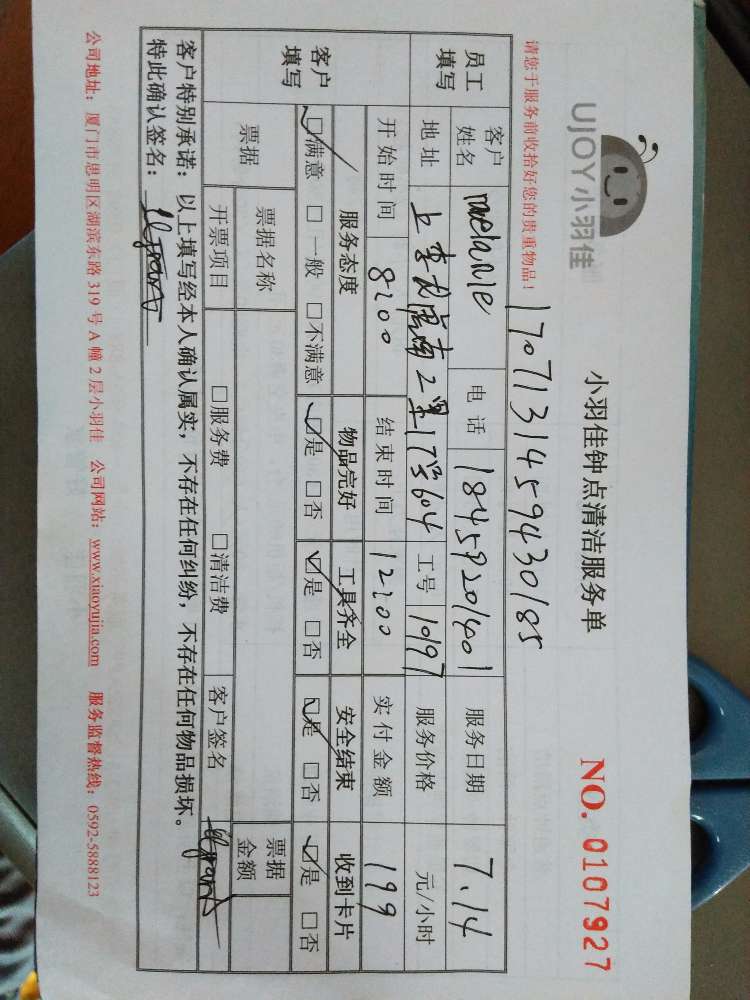 UJOY小羽佳
小羽佳钟点清洁服务单
NO. 0107927
请您于服务前收拾好您的贵重物品！
1707131459430185
员工填写
客户姓名 melanie 电话 18459201401 服务日期 7.14
地址 上李 南二里17号604 工号 10197 服务价格 元/小时
开始时间 8:00 结束时间 12:00 实付金额 199
客户填写
服务态度 物品完好 工具齐全 安全结束 收到卡片
☑满意 □一般 □不满意 ☑是 □否 ☑是 □否 ☑是 □否 ☑是 □否
票据 票据名称 票据金额
开票项目 □服务费 □清洁费 客户签名
客户特别承诺：以上填写经本人确认属实，不存在任何纠纷，不存在任何物品损坏。
特此确认签名：
公司地址：厦门市思明区湖滨东路 319 号 A 幢 2 层小羽佳 公司网站：www.xiaoyujia.com 服务监督热线：0592-5888123